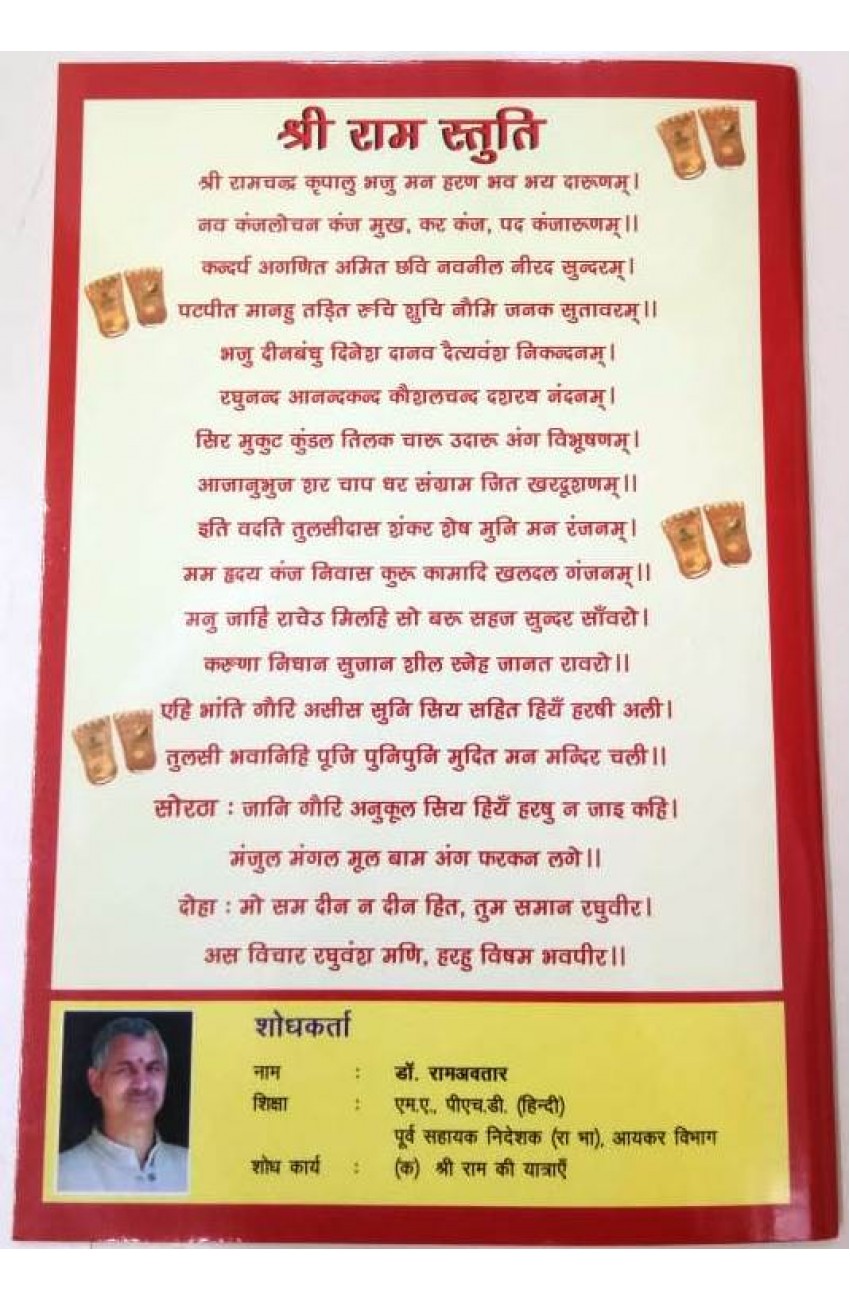 श्री राम स्तुति
श्री रामचन्द्र कृपालु भजु मन हरण भव भय दारूणम्।
नव कंजलोचन कंज मुख, कर कंज, पद कंजारूणम्।।
कन्दर्प अगणित अमित छवि नवनील नीरद सुन्दरम्।
पटपीत मानहु तड़ित रुचि शुचि नौमि जनक सुतावरम्।।
भजु दीनबंधु दिनेश दानव दैत्यवंश निकन्दनम्।
रघुनन्द आनन्दकन्द कौशलचन्द दशरथ नंदनम्।
सिर मुकुट कुंडल तिलक चारू उदारू अंग विभूषणम्।
आजानुभुज शर चाप धर संग्राम जित खरदूशणम्।।
इति वदति तुलसीदास शंकर शेष मुनि मन रंजनम्।
मम हृदय कंज निवास कुरू कामादि खलदल गंजनम्।।
मनु जाहिं राचेउ मिलहि सो बरू सहज सुन्दर साँवरो।
करूणा निधान सुजान शील स्नेह जानत रावरो।।
एहि भांति गौरि असीस सुनि सिय सहित हियँ हरषी अली।
तुलसी भवानिहि पूजि पुनिपुनि मुदित मन मन्दिर चली।।
सोरठा : जानि गौरि अनुकूल सिय हियँ हरषु न जाइ कहि।
मंजुल मंगल मूल बाम अंग फरकन लगे।।
दोहा : मो सम दीन न दीन हित, तुम समान रघुवीर।
अस विचार रघुवंश मणि, हरहु विषम भवपीर।।
शोधकर्ता
नाम : डॉ. रामअवतार
शिक्षा : एम.ए., पीएच.डी. (हिन्दी)
पूर्व सहायक निदेशक (रा भा), आयकर विभाग
शोध कार्य : (क) श्री राम की यात्राएँ